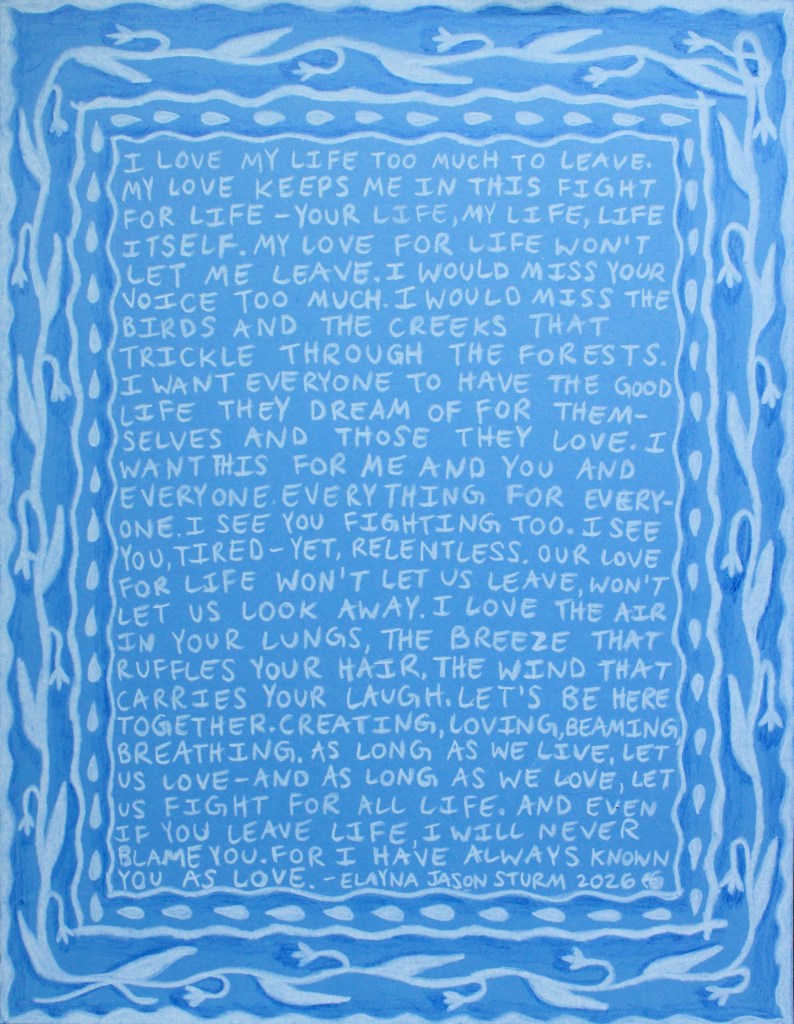 I LOVE MY LIFE TOO MUCH TO LEAVE.
MY LOVE KEEPS ME IN THIS FIGHT
FOR LIFE – YOUR LIFE, MY LIFE, LIFE
ITSELF. MY LOVE FOR LIFE WON'T
LET ME LEAVE. I WOULD MISS YOUR
VOICE TOO MUCH. I WOULD MISS THE
BIRDS AND THE CREEKS THAT
TRICKLE THROUGH THE FORESTS.
I WANT EVERYONE TO HAVE THE GOOD
LIFE THEY DREAM OF FOR THEM-
SELVES AND THOSE THEY LOVE. I
WANT THIS FOR ME AND YOU AND
EVERYONE. EVERYTHING FOR EVERY-
ONE. I SEE YOU FIGHTING TOO. I SEE
YOU, TIRED – YET, RELENTLESS. OUR LOVE
FOR LIFE WON'T LET US LEAVE, WON'T
LET US LOOK AWAY. I LOVE THE AIR
IN YOUR LUNGS, THE BREEZE THAT
RUFFLES YOUR HAIR, THE WIND THAT
CARRIES YOUR LAUGH. LET'S BE HERE
TOGETHER. CREATING, LOVING, BEAMING,
BREATHING. AS LONG AS WE LIVE, LET
US LOVE – AND AS LONG AS WE LOVE, LET
US FIGHT FOR ALL LIFE. AND EVEN
IF YOU LEAVE LIFE, I WILL NEVER
BLAME YOU. FOR I HAVE ALWAYS KNOWN
YOU AS LOVE. – ELAYNA JASON STURM 2026